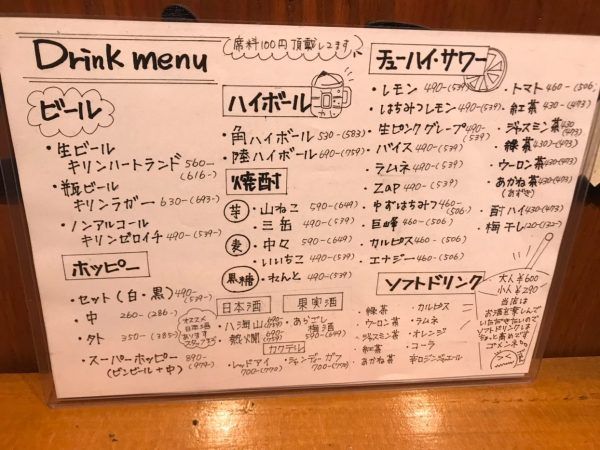 Drink menu
席料100円頂戴してます
ビール
・生ビール
キリンハートランド 560-
(616-)
・瓶ビール
キリンラガー 630-(693-)
・ノンアルコール
キリンゼロイチ 490-(539-)
ホッピー
・セット(白・黒) 490-
(539-)
・中 260-(286-)
・外 350-(385-)
・スーパーホッピー 890-
(ビンビール+中) (979-)
オススメ
日本酒
あります
スタッフまで
ハイボール
・角ハイボール 530-(583)
・陸ハイボール 690-(759)
焼酎
芋
・山ねこ 590-(649)
・三岳 490-(539)
麦
・中々 590-(649)
・いいちこ 490-(539)
黒糖
・れんと 490-(539)
日本酒
・八海山 690-
(759)
・熱燗
果実酒
・あらごし
梅酒
590-(649)
カクテル
・レッドアイ
700-(770)
・シャンディーガフ
700-(770)
チューハイ・サワー
・レモン 490-(539)
・はちみつレモン 490-(539)
・生ピンクグレープ 490-
(539)
・バイス 490-(539)
・ラムネ 490-(539)
・Zap 490-(539)
・ゆずはちみつ 460-
(506)
・巨峰 460-(506)
・カルピス 460-(506)
・エナジー 460-(506)
・トマト 460-(506)
・紅茶 430-(473)
・ジャスミン茶 430
(473)
・緑茶 430-(473)
・ウーロン茶 430-(473)
・あかね茶 430-(473)
(あずき)
・酎ハイ 430-(473)
・梅干し 120-(132-)
ソフトドリンク
・緑茶
・ウーロン茶
・ジャスミン茶
・紅茶
・あかね茶
・カルピス
・ラムネ
・オレンジ
・コーラ
・辛口ジンジャエール
大人¥600
小人¥290
当店は
お酒を楽しんで
いただきたいので
ソフトドリンクは
ちょっと高めです
ゴメンネ